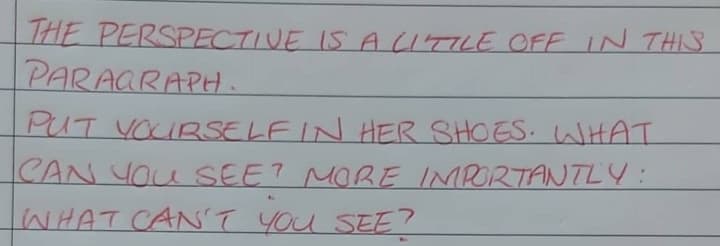 THE PERSPECTIVE IS A LITTLE OFF IN THIS
PARAGRAPH.
PUT YOURSELF IN HER SHOES. WHAT
CAN YOU SEE? MORE IMPORTANTLY:
WHAT CAN'T YOU SEE?